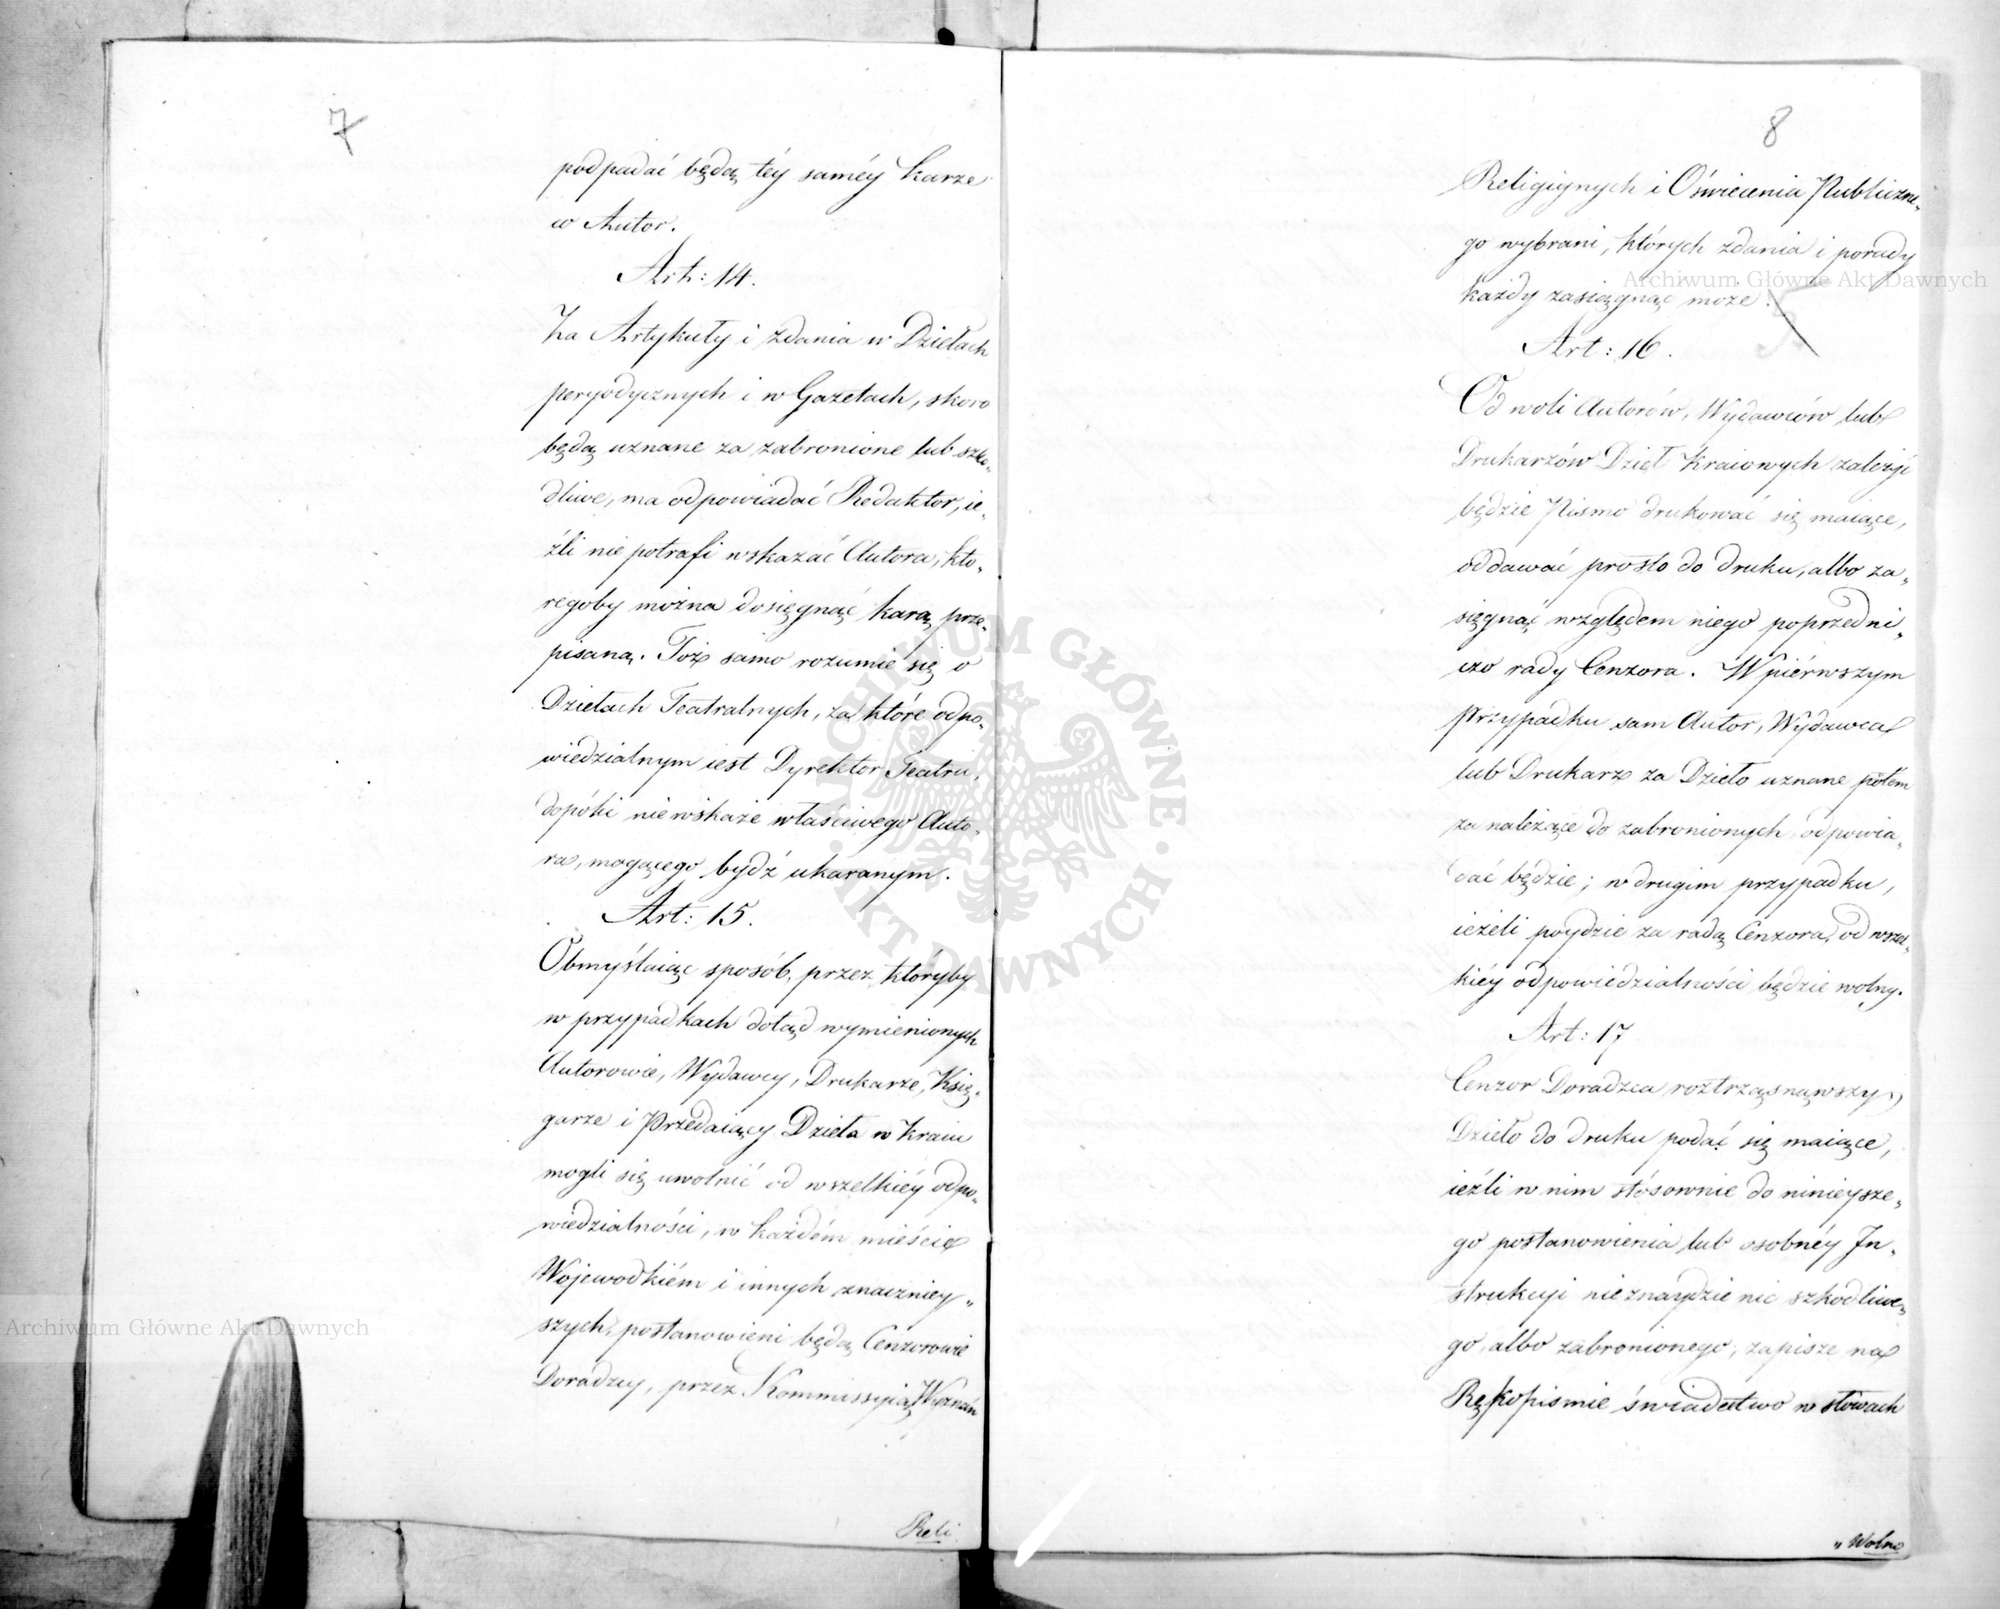 7
podpadać będą téy saméy karze
w Autor.
Art: 14.
Za Artykuły i zdania w Dziełach
peryodycznych i w Gazetach, skoro
będą uznane za zabronione lub szko„
dliwe, ma odpowiadać Redaktor, ie„
źli nie potrafi wskazać Autora, któ„
regoby można dosięgnąć karą prze„
pisaną. Toż samo rozumie się o
Dziełach Teatralnych, za które odpo„
wiedzialnym iest Dyrektor Teatru,
dopóki niewskaże właściwego Auto„
ra, mogącego bydź ukaranym.
Art: 15.
Obmyślaiąc sposób, przez któryby
w przypadkach dotąd wymienionych
Autorowie, Wydawcy, Drukarze, Księ„
garze i Przedaiący Dzieła w Kraiu
mogli się uwolnić od wszelkiéy odpo„
wiedzialności, w każdém mieście
Wojewodkiém i innych znaczniey„
szych, postanowieni będą Cenzorowie
Doradzcy, przez Kommissyią Wyznań
Reli
8
Religiynych i Oświecenia Publiczne„
go wybrani, których zdania i porady
każdy zasięgnąć może.
Art: 16.
Od woli Autorów, Wydawców lub
Drukarzów Dzieł Kraiowych zależyć
będzie Pismo drukować się maiące,
oddawać prosto do druku, albo za„
sięgnąć względem niego poprzedni„
czo rady Cenzora. W piérwszym
przypadku sam Autor, Wydawca
lub Drukarz za Dzieło uznane potem
za należące do zabronionych odpowia„
dać będzie; w drugim przypadku,
ieżeli poydzie za radą Cenzora, od wszel„
kiéy odpowiedzialności będzie wolny.
Art: 17
Cenzor Doradzca roztrząsnąwszy
Dzieło do druku podać się maiące,
ieźli w nim stósownie do ninieysze„
go postanowienia lub osobnéy In„
strukcyi nieznaydzie nic szkodliwe„
go, albo zabronionego, zapisze na
Rękopismie świadectwo w słowach
„Wolno
Archiwum Główne Akt Dawnych
Archiwum Główne Akt Dawnych
ARCHIWUM GŁÓWNE · AKT DAWNYCH ·